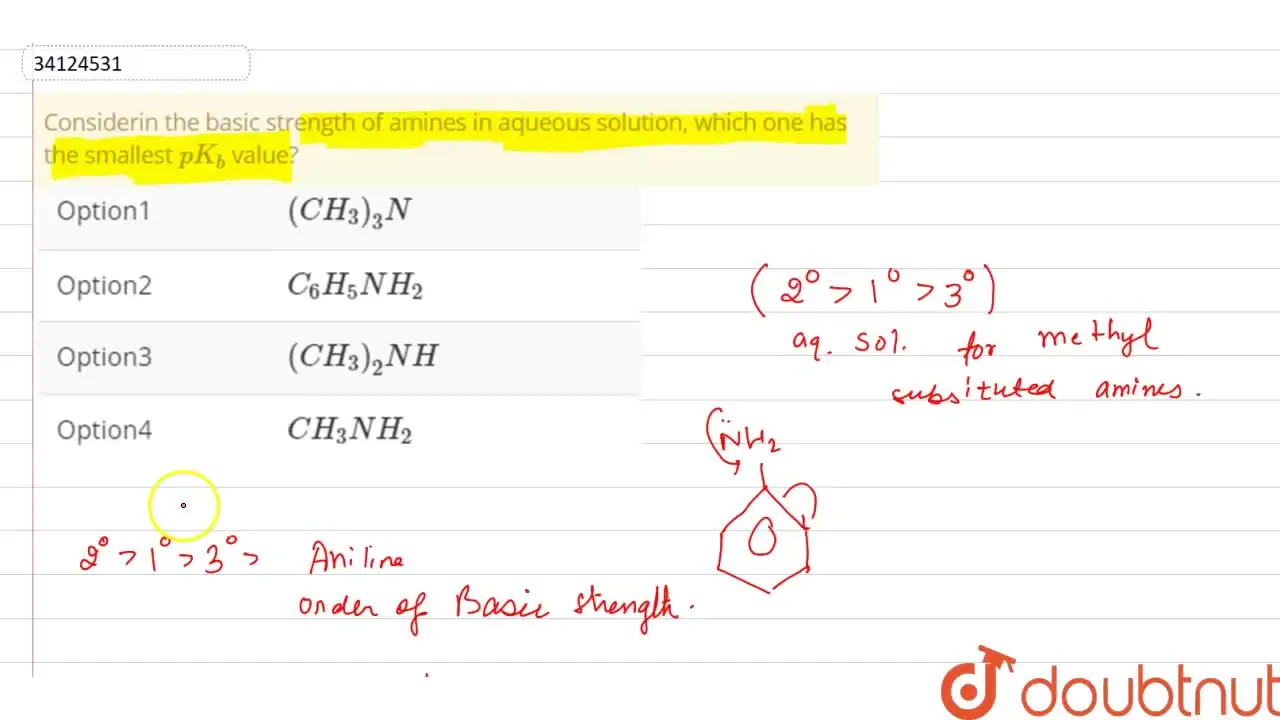 34124531
Considerin the basic strength of amines in aqueous solution, which one has
the smallest pK_b value?
Option1 (CH₃)₃N
Option2 C₆H₅NH₂
Option3 (CH₃)₂NH
Option4 CH₃NH₂
(2° > 1° > 3°)
aq. sol. for methyl
substituted amines.
N̈H₂
2° > 1° > 3° > Aniline
order of Basic strength.
doubtnut